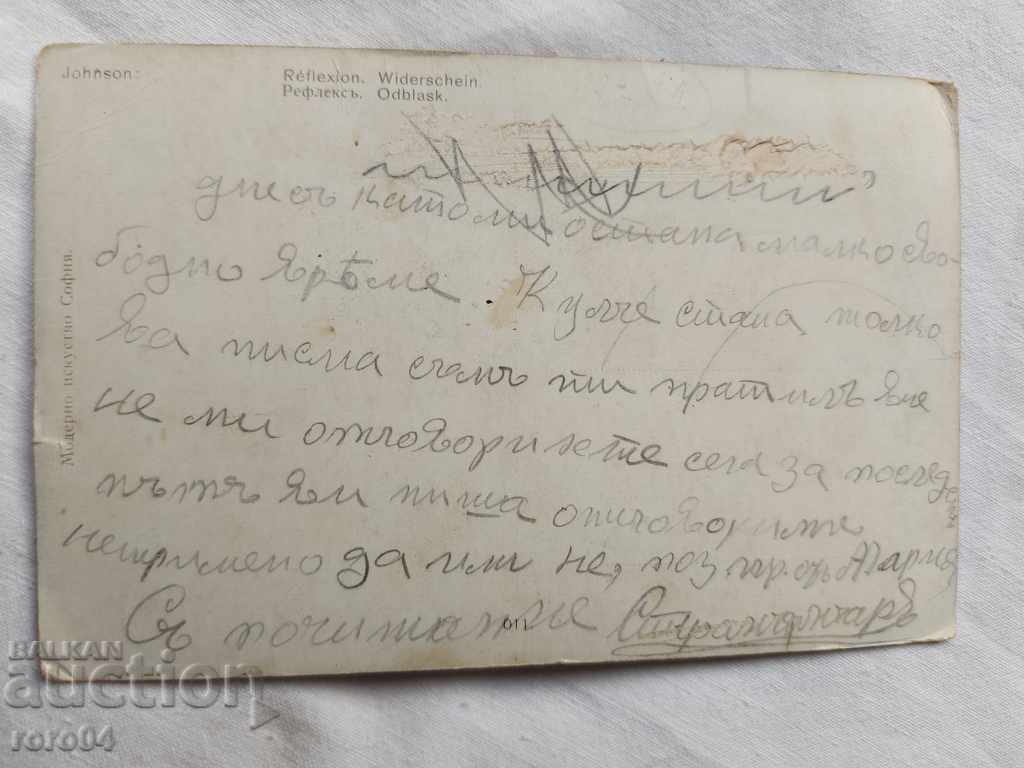 Johnson:
Réflexion. Widerschein.
Рефлексъ. Odblask.
Модерно искуство София.
днесъ като ми остана малко сво-
бодно врѣме. стана толко
ва писма съмъ ти пратилъ вие
не ми отговорихте сега за послѣде
пътъ ви пиша отговорите
непримено да или не, поз
Съ почитание
611
BALKAN
auction
roro04